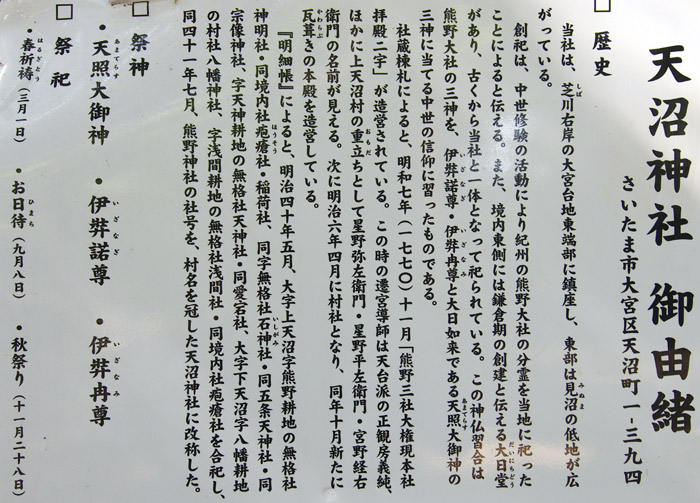 天沼神社 御由緒
さいたま市大宮区天沼町一-三九四
□ 歴史
当社は、芝川右岸の大宮台地東端部に鎮座し、東部は見沼の低地が広
がっている。
創祀は、中世修験の活動により紀州の熊野大社の分霊を当地に祀った
ことによると伝える。また、境内東側には鎌倉期の創建と伝える大日堂
があり、古くから当社と一体となって祀られている。この神仏習合は
熊野大社の三神を、伊弉諾尊・伊弉冉尊と大日如来である天照大御神の
三神に当てる中世の信仰に習ったものである。
社蔵棟札によると、明和七年（一七七〇）十一月「熊野三社大権現本社
拝殿二字」が造営されている。この時の遷宮導師は天台派の正観房義純、
ほかに上天沼村の重立ちとして星野弥左衛門・星野平左衛門・宮野経右
衛門の名前が見える。次に明治六年四月に村社となり、同年十月新たに
瓦葺きの本殿を造営している。
『明細帳』によると、明治四十年五月、大字上天沼字熊野耕地の無格社
神明社・同境内社疱瘡社・稲荷社、同字無格社石神社・同五条天神社・同
宗像神社、字天神耕地の無格社天神社・同愛宕社、大字下天沼字八幡耕地
の村社八幡神社、字浅間耕地の無格社浅間社・同境内社疱瘡社を合祀し、
同四十一年七月、熊野神社の社号を、村名を冠した天沼神社に改称した。
□ 祭神
・天照大御神 ・伊弉諾尊 ・伊弉冉尊
□ 祭祀
・春祈祷（三月一日） ・お日待（九月八日） ・秋祭り（十一月二十八日）